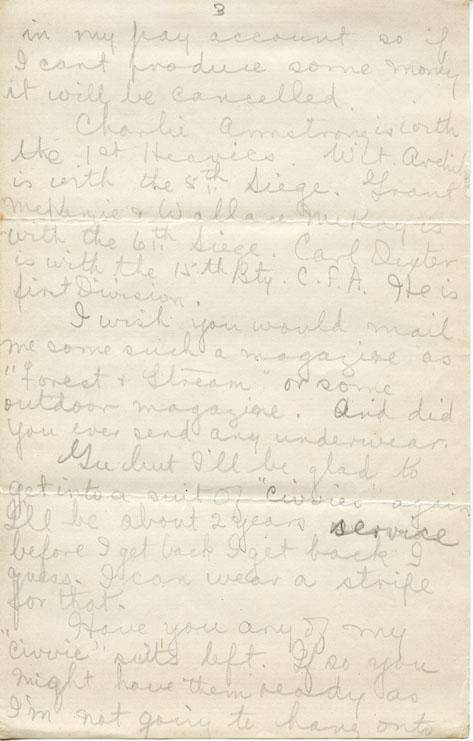 3
in my pay account so if
I cant produce some money
it will be cancelled.
Charlie Armstrong is with
the 1st Heavies. Wlt.
is with the 8th Siege. Grant
McKenzie & Wallace McKay is
with the 6th Siege. Carl Dexter
is with the 15th Bty. C.F.A. He is
first Division.
I wish you would mail
me some such a magazine as
"Forest & Stream" or some
outdoor magazine. And did
you ever send any underwear.
Gee but I'll be glad to
get into a suit of "civvies" again
I'll be about 2 years service
before I get back I get back I
guess. I can wear a stripe
for that.
Have you any of my
"civvie" suits left. If so you
might have them ready as
I'm not going to have onto